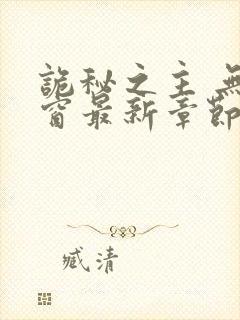 詭秘之主 無
窗最新章節
臧清